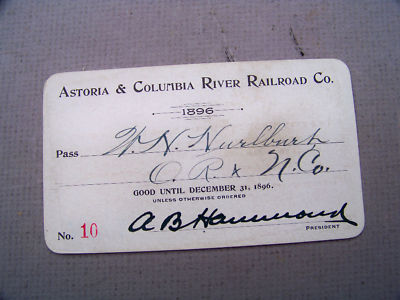 ASTORIA & COLUMBIA RIVER RAILROAD CO.
1896
Pass W. H. Hurlburt
O. R. & N. Co.
GOOD UNTIL DECEMBER 31, 1896.
UNLESS OTHERWISE ORDERED
A B Hammond
No. 10 PRESIDENT